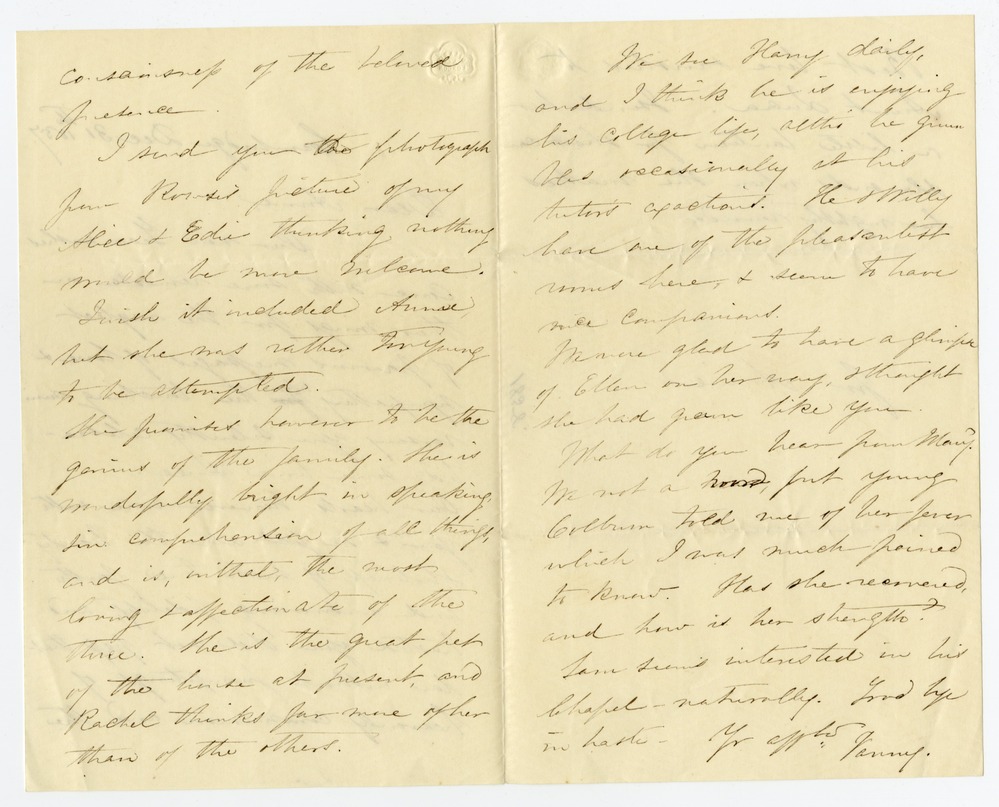 consciousness of the beloved
presence.
I send you the photograph
from Rowse's picture of my
Alice & Edie thinking nothing
would be more welcome.
I wish it included Annie,
but she was rather too young
to be attempted.
She promises however to be the
genius of the family. She is
wonderfully bright in speaking,
in comprehension of all things,
and is, withal, the most
loving & affectionate of the
three. She is the great pet
of the house at present, and
Rachel thinks far more of her
than of the others.
We see Harry daily,
and I think he is enjoying
his college life, altho' he
occasionally at his
tutor's exactions. He & Willy
have one of the pleasantest
rooms here, & seem to have
nice companions.
We were glad to have a glimpse
of Ellen on her way, & thought
she had grown like you.
What do you hear from Mary.
We not a word, but young
Colburn told me of her fever
which I was much pained
to know. Has she recovered,
and how is her strength?
Sam seems interested in his
Chapel - naturally. Good bye
in haste - Yr affte Fanny.